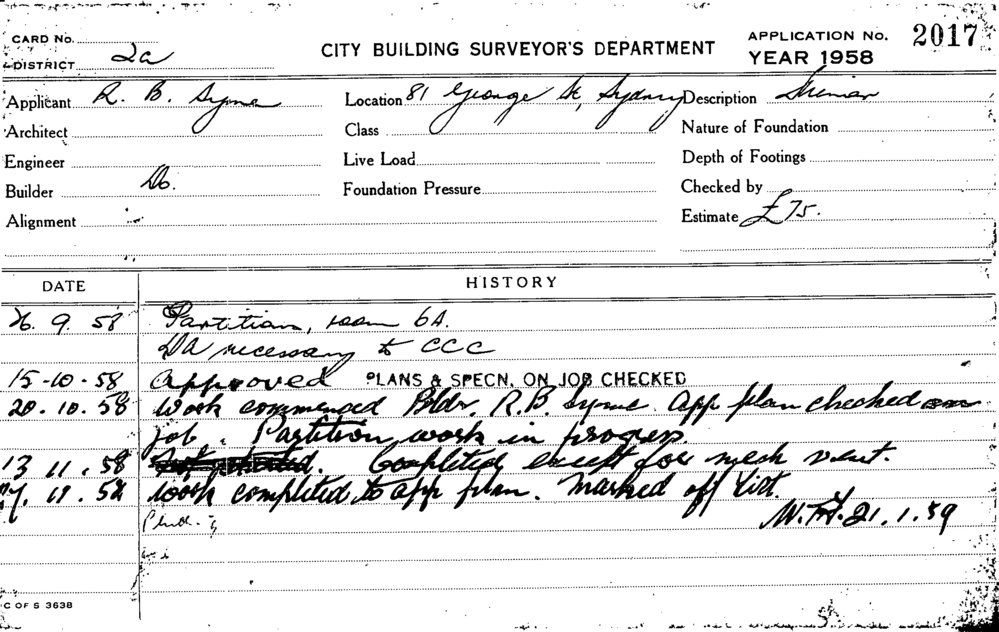 CARD No.
DISTRICT 2a
CITY BUILDING SURVEYOR'S DEPARTMENT
APPLICATION No. 2017
YEAR 1958
Applicant R. B. Syme
Location 81 George St, Sydney
Description
Architect
Class
Nature of Foundation
Engineer
Live Load
Depth of Footings
Builder Do.
Foundation Pressure
Checked by
Alignment
Estimate £75.
DATE HISTORY
26. 9. 58 Partitions, room 6A.
DA necessary to CCC
15-10-58 Approved PLANS & SPECN. ON JOB CHECKED
20.10.58 Work commenced Bldr. R.B. Syme. App plan checked on
job. Partition work in progress.
13 11. 58 Completed except for mesh vent.
work completed to app plan. Marked off list.
21.1.59
C OF S 3638